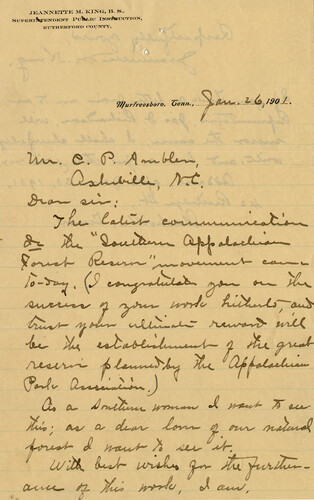 JEANNETTE M. KING, B. S.,
SUPERINTENDENT PUBLIC INSTRUCTION,
RUTHERFORD COUNTY.
Murfreesboro, Tenn., Jan. 26, 1901.
Mr. C. P. Ambler,
Asheville, N.C.
Dear sir:
The latest communication
on the "Southern Appalachian
Forest Reserve" movement came
to-day. (I congratulate you on the
success of your work hitherto, and
trust your ultimate reward will
be the establishment of the great
reserve planned by the Appalachian
Park Association.)
As a southern woman I want to see
this; as a dear lover of our natural
forest I want to see it.
With best wishes for the further-
ance of this work, I am,